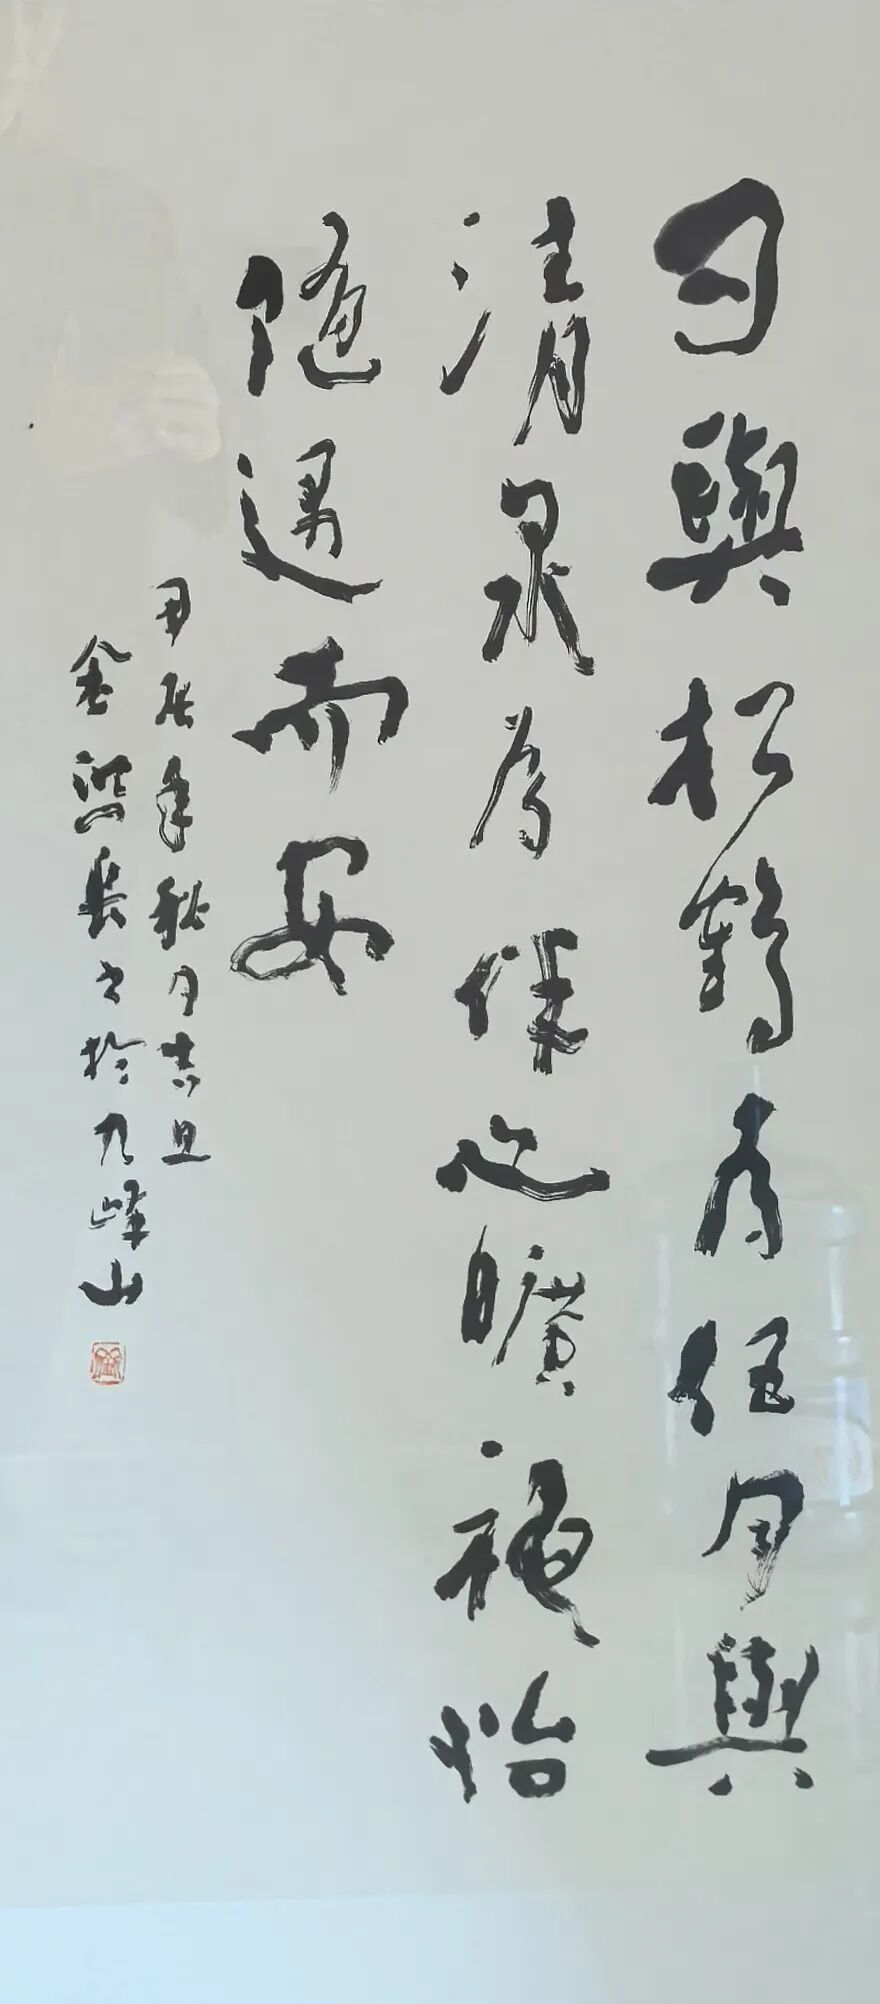 日與松鶴有但月與
清泉為伴心曠神怡
隨遇而安
甲辰年秋月吉旦
金鴻長書於九峰山